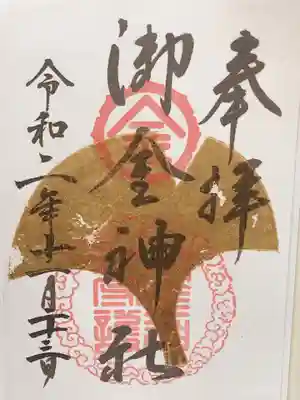 奉拝
御金神社
令和二年十一月十三日